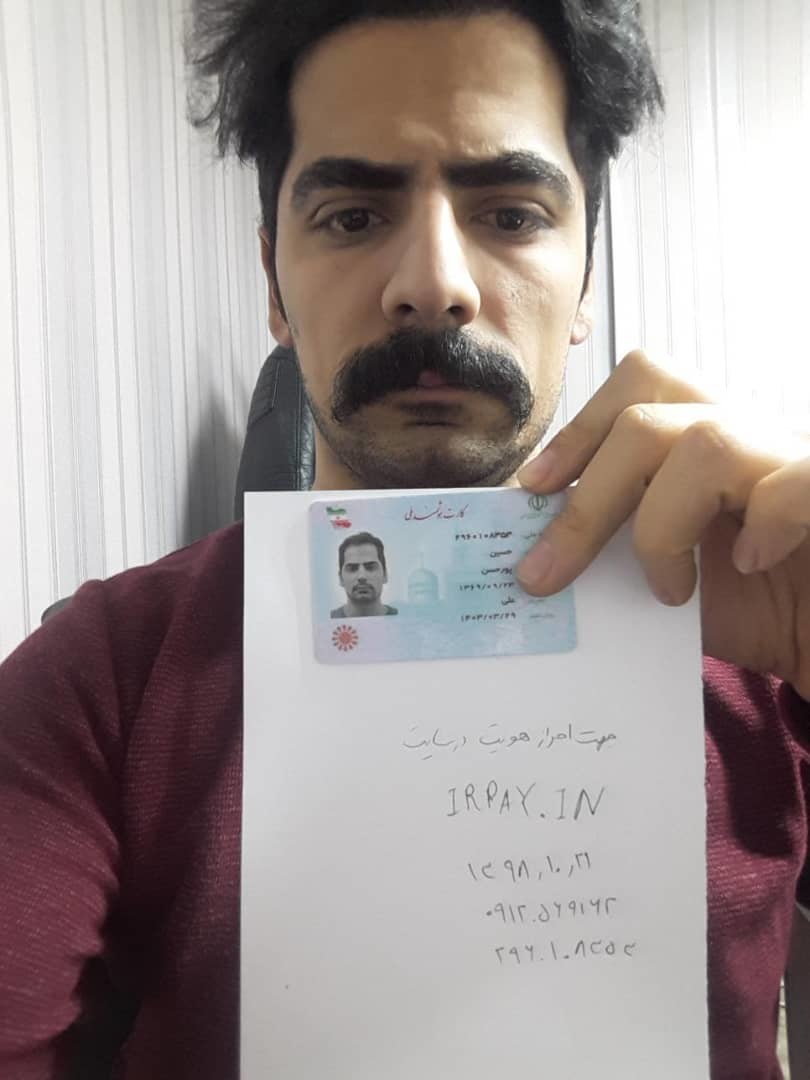 کارت هوشمند ملی
۲۹۶۰۱۰۸۳۵۳
حسین
پورحسن
۱۳۶۹/۰۹/۲۳
علی
۱۴۰۳/۰۳/۲۹
جهت احراز هویت در سایت
IRPAY.IN
۱۳۹۸,۱۰,۲۱
۰۹۱۲۰۵۶۹۱۶۲
۲۹۶۰۱۰۸۳۵۳